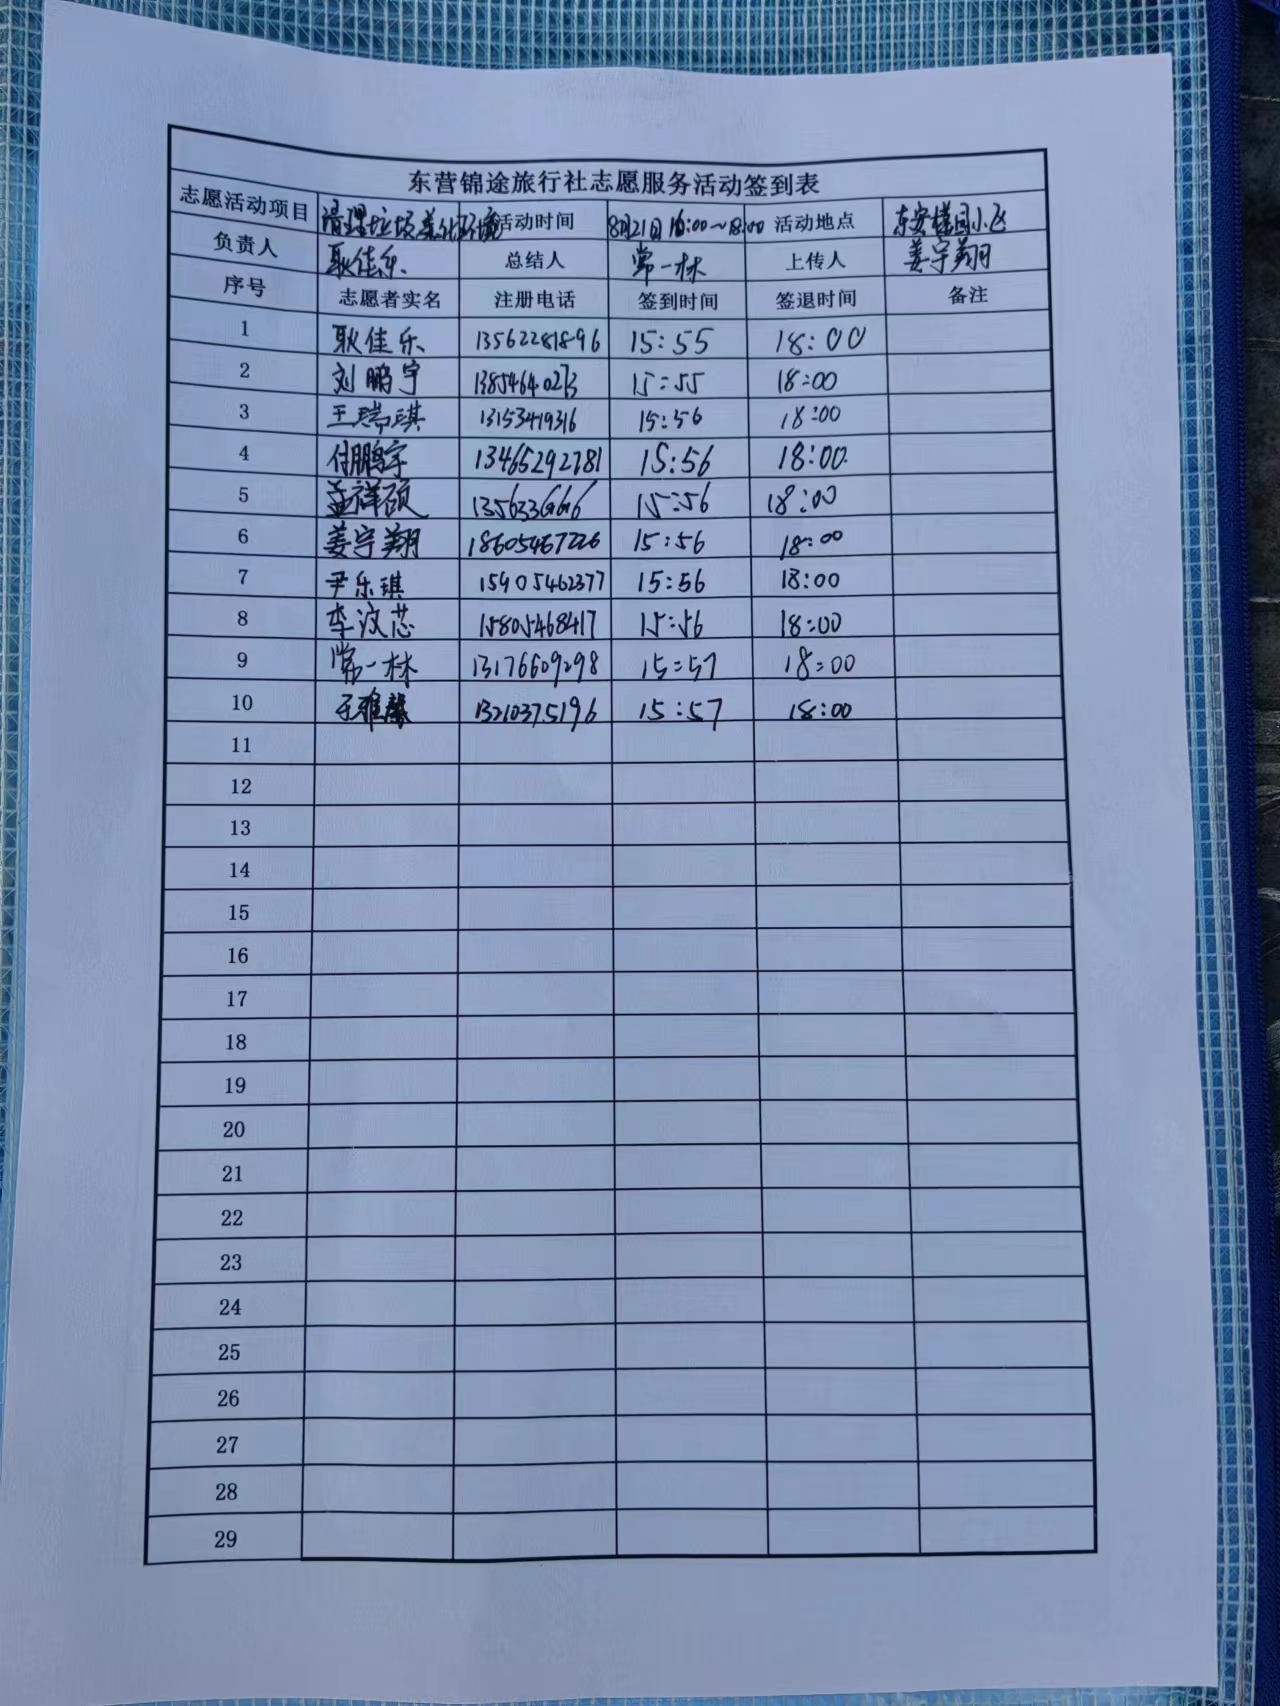 东营锦途旅行社志愿服务活动签到表
志愿活动项目 清理垃圾美化环境 活动时间 8月21日 16:00~18:00 活动地点 东安样园小区
负责人 耿佳乐 总结人 常一林 上传人 姜宇翔
序号 志愿者实名 注册电话 签到时间 签退时间 备注
1 耿佳乐 13562281896 15:55 18:00
2 刘鹏宇 13854640273 15:55 18:00
3 王瑞琪 13153419316 15:56 18:00
4 付鹏宇 13465292781 15:56 18:00
5 盖祥硕 15:56 18:00
6 姜宇翔 18605467226 15:56 18:00
7 尹乐琪 15905462377 15:56 18:00
8 李汶芯 15805468417 15:56 18:00
9 常一林 13176609298 15:57 18:00
10 王雅馨 13210375196 15:57 18:00
11
12
13
14
15
16
17
18
19
20
21
22
23
24
25
26
27
28
29